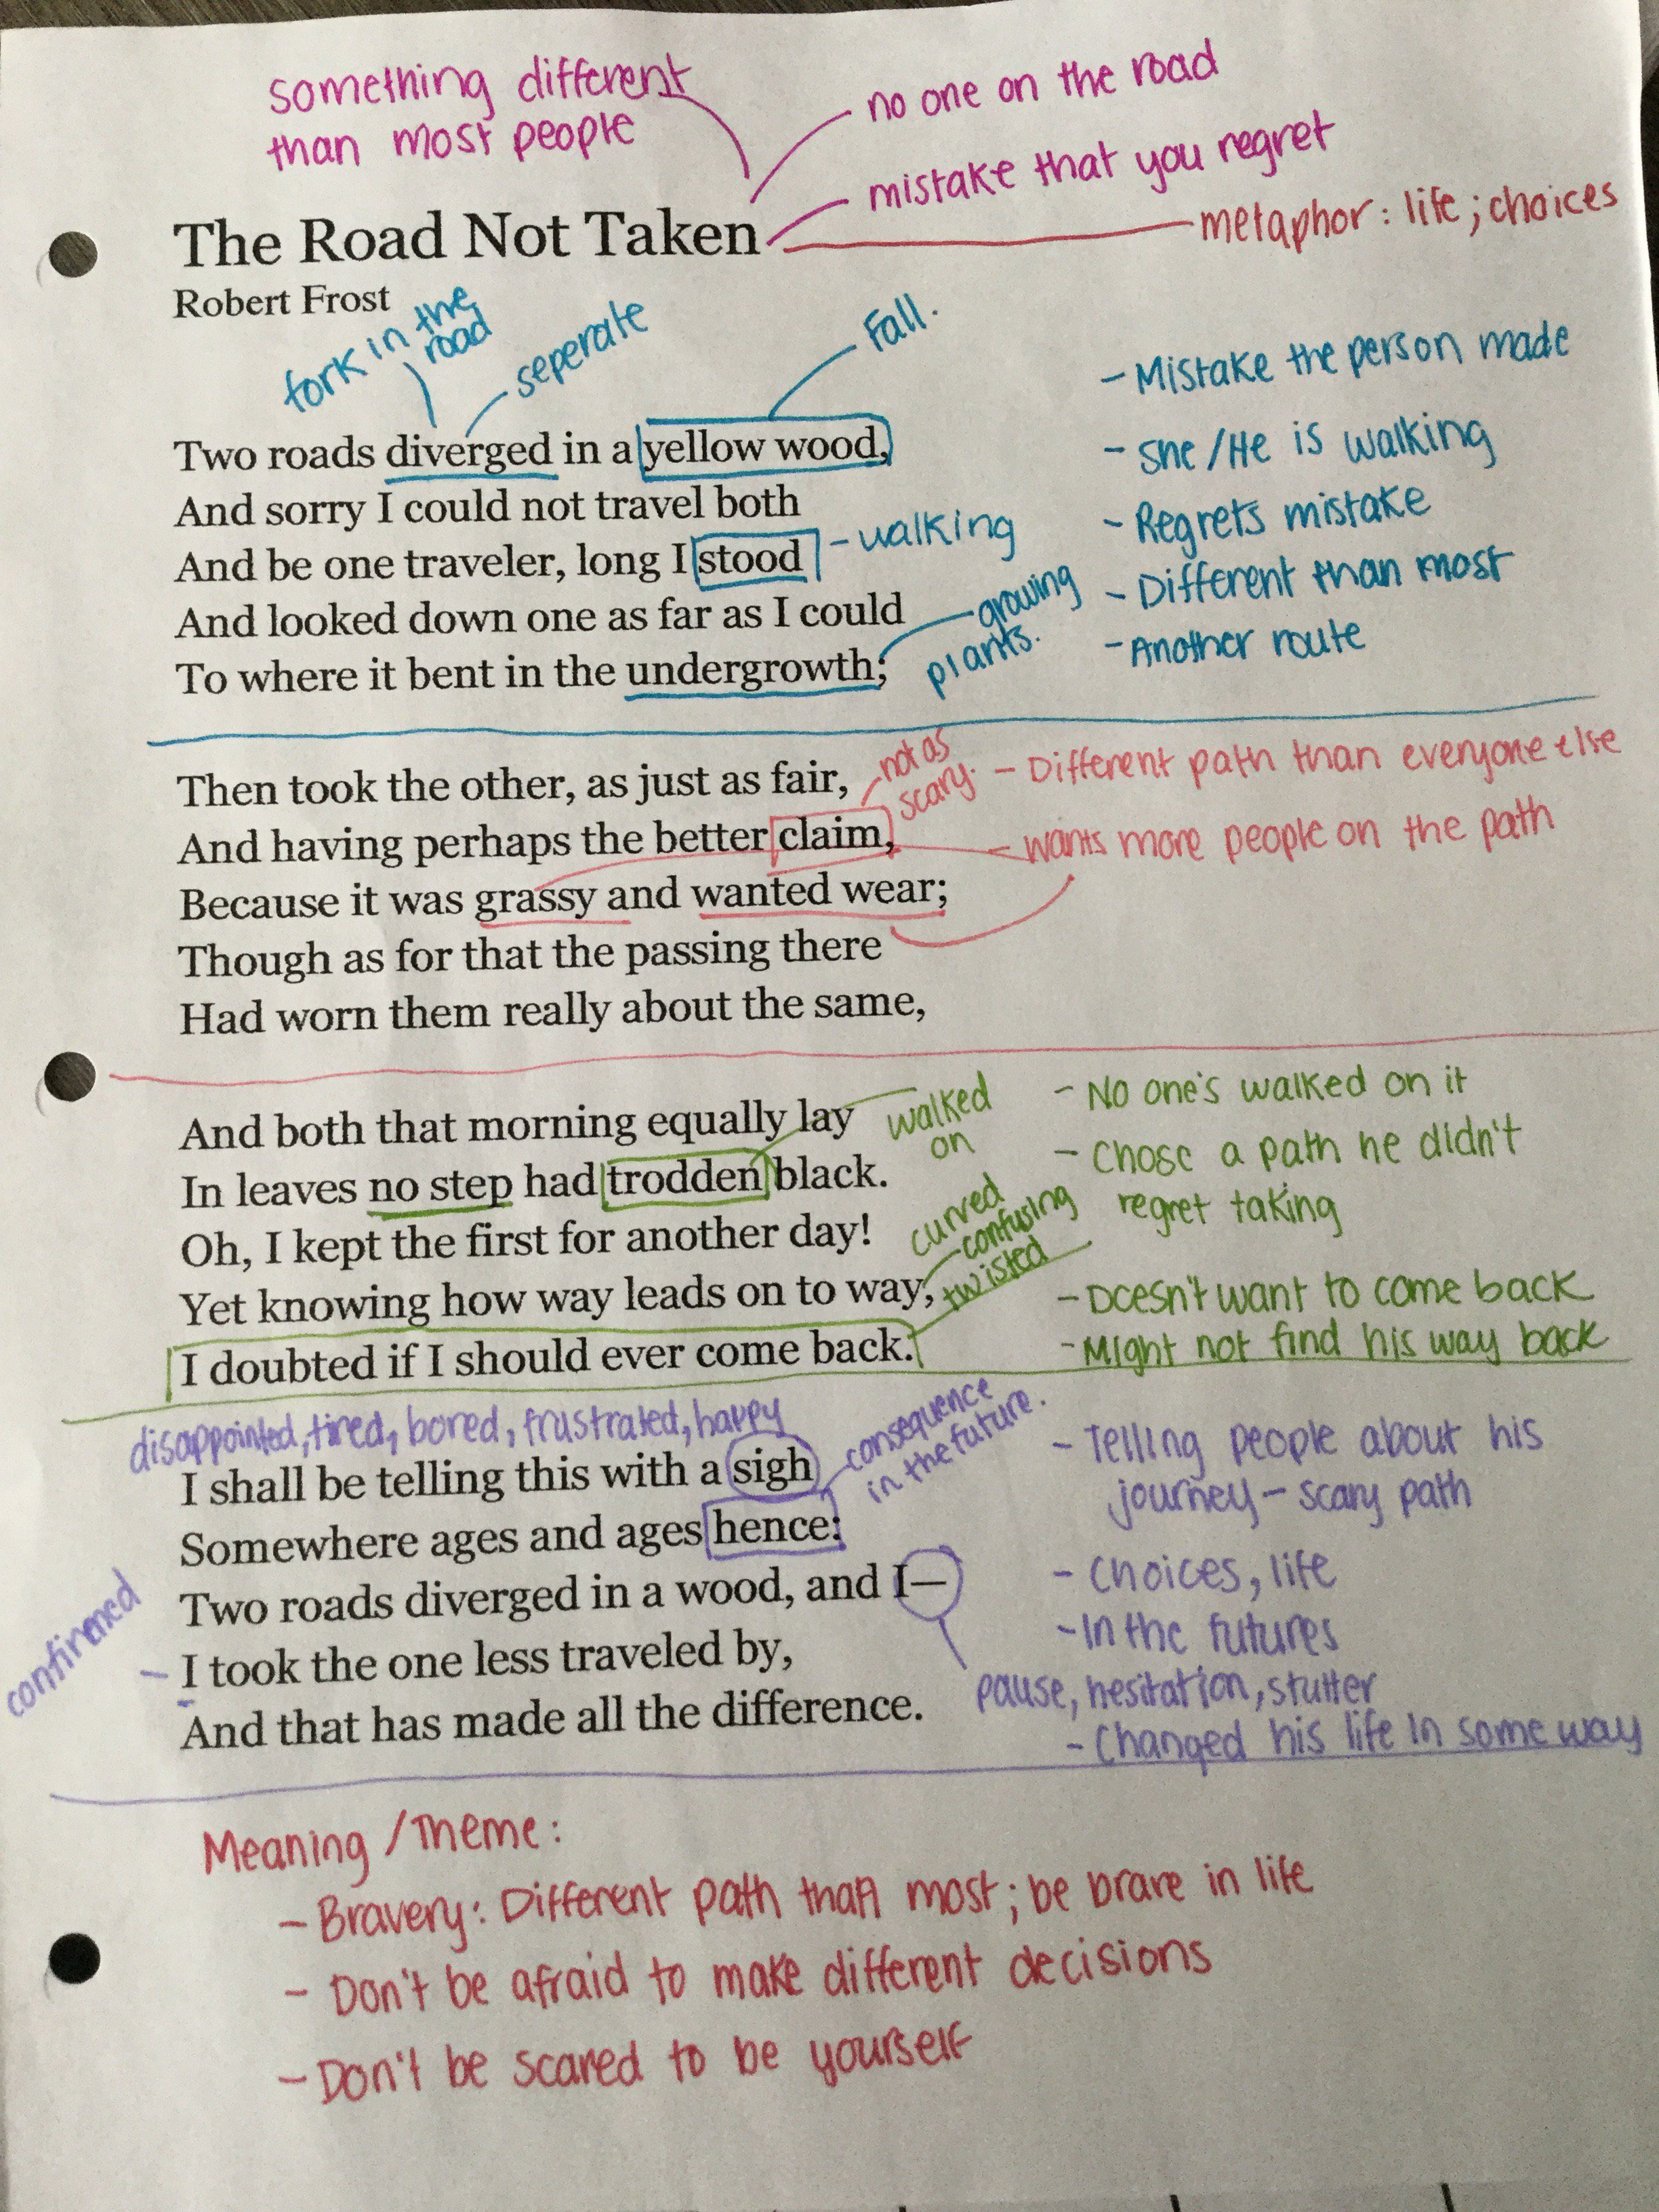 something different
than most people
no one on the road
mistake that you regret
The Road Not Taken
metaphor: life; choices
Robert Frost
fork in the
road
seperate
Fall.
Two roads diverged in a yellow wood,
And sorry I could not travel both
And be one traveler, long I stood
- walking
And looked down one as far as I could
To where it bent in the undergrowth;
growing
plants.
- Mistake the person made
- She/He is walking
- Regrets mistake
- Different than most
- Another route
Then took the other, as just as fair,
And having perhaps the better claim,
Because it was grassy and wanted wear;
Though as for that the passing there
Had worn them really about the same,
not as
scary.
- Different path than everyone else
- wants more people on the path
And both that morning equally lay
In leaves no step had trodden black.
Oh, I kept the first for another day!
Yet knowing how way leads on to way,
I doubted if I should ever come back.
walked
on
curved
confusing
twisted
- No one's walked on it
- Chose a path he didn't
regret taking
- Doesn't want to come back
- Might not find his way back
disappointed, tired, bored, frustrated, happy
I shall be telling this with a sigh
Somewhere ages and ages hence:
Two roads diverged in a wood, and I—
I took the one less traveled by,
And that has made all the difference.
consequence
in the future.
confirmed
- Telling people about his
journey - scary path
- Choices, life
- In the futures
pause, hesitation, stutter
- Changed his life in some way
Meaning / Theme:
- Bravery: Different path than most; be brave in life
- Don't be afraid to make different decisions
- Don't be scared to be yourself